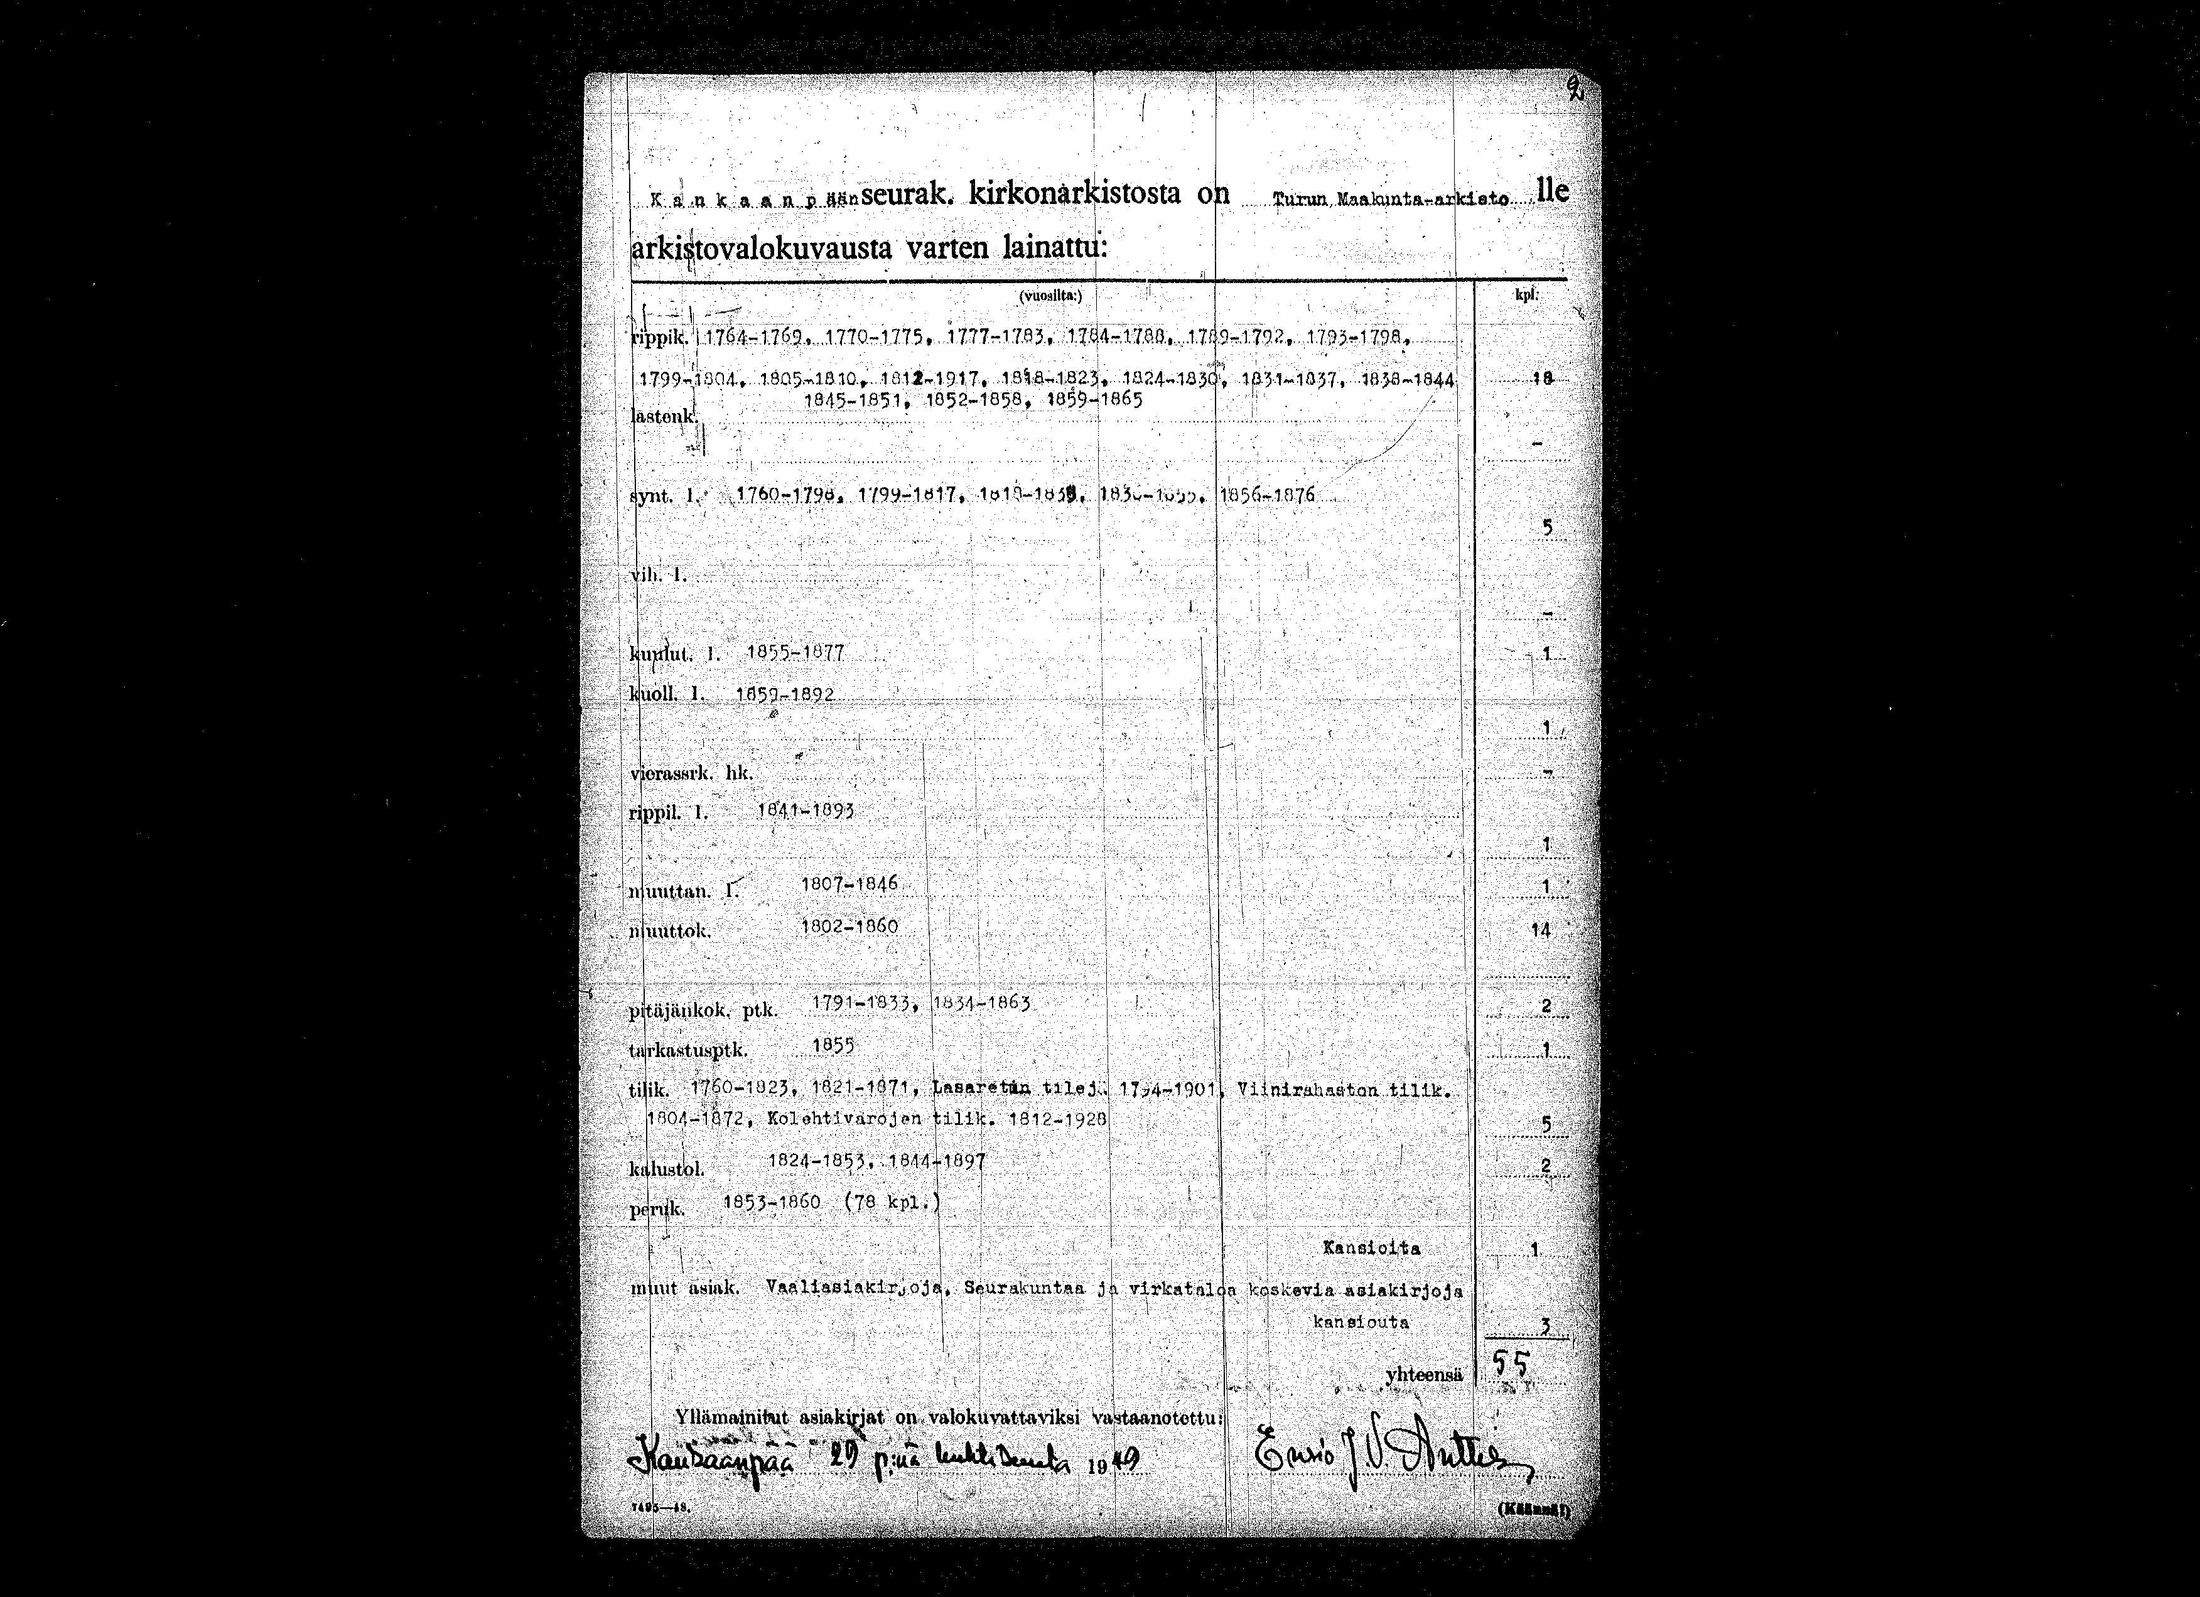 2
Kankaanpään seurak. kirkonarkistosta on Turun Maakunta-arkisto lle
arkistovalokuvausta varten lainattu:
(vuosilta:) kpl:
rippik. 1764-1769, 1770-1775, 1777-1783, 1784-1788, 1789-1792, 1793-1798,
1799-1804, 1805-1810, 1812-1917, 1818-1823, 1824-1830, 1831-1837, 1838-1844 18
1845-1851, 1852-1858, 1859-1865
lastenk. -
synt. l. 1760-1798, 1799-1817, 1856-1876
5
vih. l.
-
kuulut. l. 1855-1877 1
kuoll. l. 1859-1892
1
vierassrk. hk. -
rippil. l. 1841-1893
1
muuttan. l. 1807-1846 1
muuttok. 1802-1860 14
pitäjänkok. ptk. 1791-1833, 1834-1863 2
tarkastusptk. 1855 1
tilik. 1760-1823, 1821-1871, Lasaretin tilej. 1794-1901, Viinirahaston tilik.
1804-1872, Kolehtivarojen tilik. 1812-1928 5
kalustol. 1824-1853, 1844-1897 2
peruk. 1853-1860 (78 kpl.)
Kansioita 1
muut asiak. Vaaliasiakirjoja, Seurakuntaa ja virkataloa koskevia asiakirjoja
kansiouta 3
yhteensä 55
Yllämainitut asiakirjat on valokuvattaviksi vastaanotettu:
Kankaanpää 29 p:nä huhtikuuta 1949 Ensio J.V.
7495—48. (Käännä!)